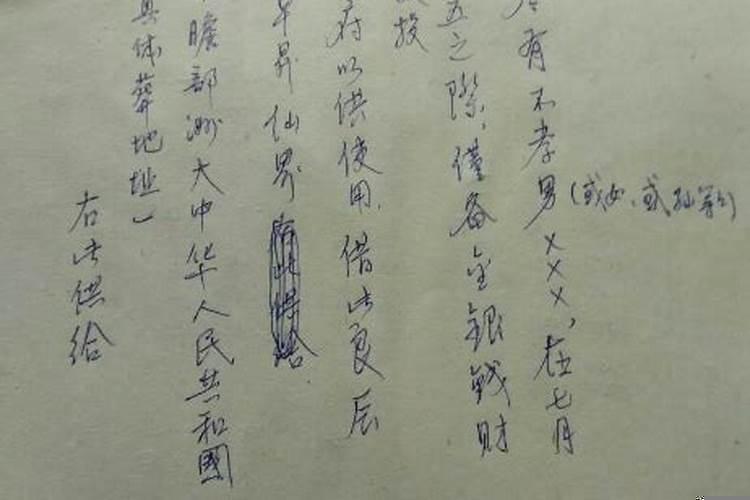 有不孝男(或女、或孙等)×××,在七月
五之際,僅备金銀钱财
投
府以供使用,借此良辰
早昇仙界
瞻部洲大中华人民共和國
具体葬地址)
右此供给